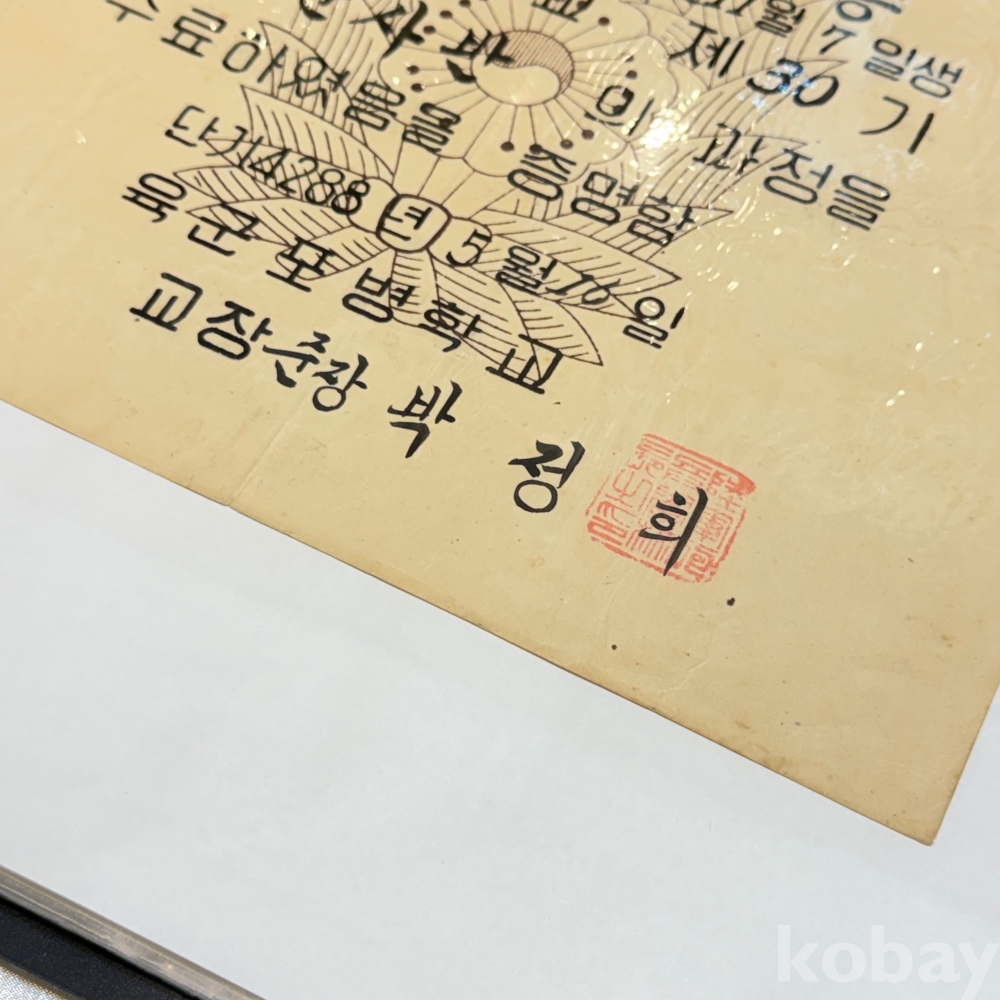 월 7 일생
제 30 기
사반 의 과정을
수료하였음을 증명함
단기4288년 5월16일
육군포병학교
교장준장 박 정 희
kobay